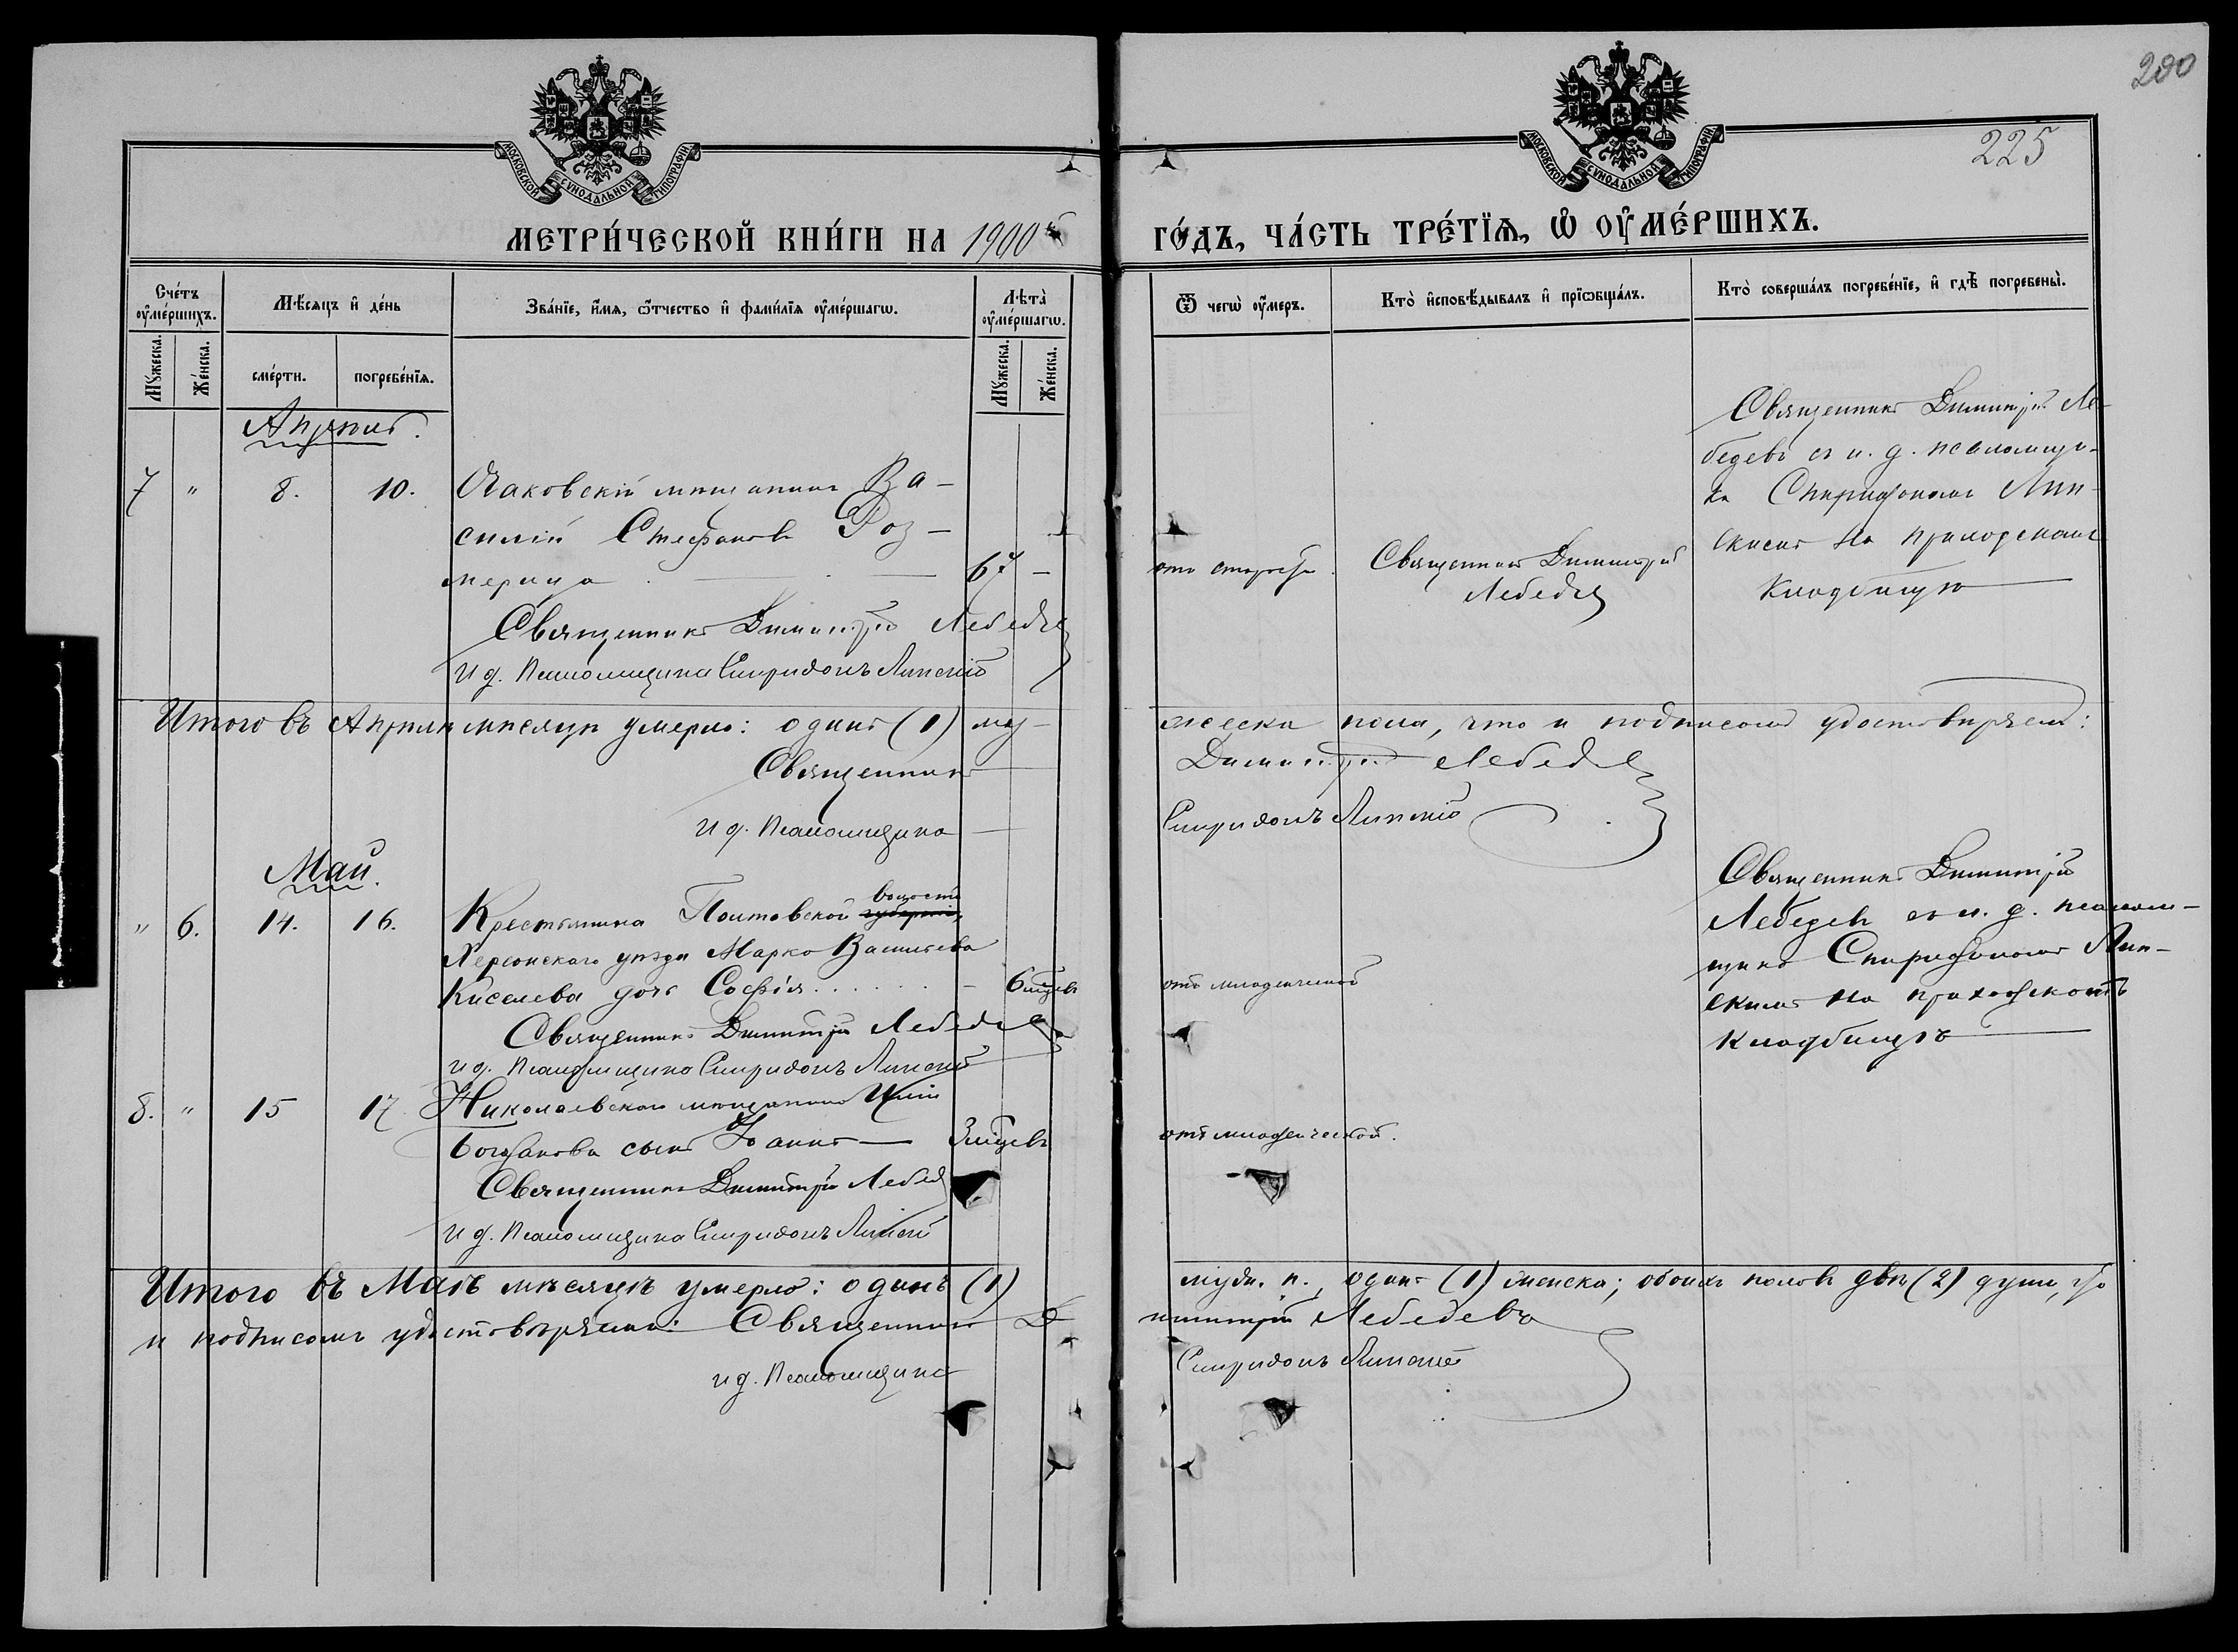 200
225
МОСКОВСКОЙ СѴНОДАЛЬНОЙ ТИПОГРАФІИ
МОСКОВСКОЙ СѴНОДАЛЬНОЙ ТИПОГРАФІИ
МЕТРИ́ЧЕСКОЙ КНИ́ГИ НА 1900й
ГО́ДЪ, ЧА́СТЬ ТРЕ́ТЇѦ, Ѡ҆ ОУ҆МЕ́РШИХЪ.
Сче́тъ оу҆ме́ршихъ.
Мꙋ́жеска.
Же́нска.
Мѣ́сяцъ и҆ де́нь
сме́рти.
погребе́нїѧ.
Зва́нїе, и҆́мѧ, ѻ҆́тчество и҆ фами́лїѧ оу҆ме́ршагѡ.
Лѣ́та̀ оу҆ме́ршагѡ.
Мꙋ́жеска.
Же́нска.
Ѿ чегѡ̀ оу҆́меръ.
Кто̀ и҆сповѣ́дывалъ и҆ прїѡбща́лъ.
Кто̀ соверша́лъ погребе́нїе, и҆ гдѣ̀ погребены̀.
Апрѣль.
7 " 8. 10. Очаковскій мѣщанинъ Ва-
силій Стефановъ Роз-
мерица 67 -
Священникъ Димитрій Лебедев
И д. Псаломщика Спиридонъ Липскій
отъ старости.
Священникъ Димитрій
Лебедев
Священникъ Димитрій Ле-
бедевъ съ и. д. псаломщи-
ка Спиридономъ Лип-
скимъ на приходскомъ
кладбищѣ
Итого въ Апрѣлѣ мѣсяцѣ умерло: одинъ (1) му-
жеска пола, что и подписомъ удостовѣряемъ:
Священникъ Димитрій Лебедев
И д. Псаломщика Спиридонъ Липскій
Май.
" 6. 14. 16. Крестьянина Полтовской губерніи, волости
Херсонскаго уѣзда Марка Васильева
Киселева дочь Софія 6 мѣсцевъ
Священникъ Димитрій Лебедев
И д. Псаломщика Спиридонъ Липскій
отъ младенческой
Священникъ Димитрій
Лебедевъ съ и. д. псалом-
щика Спиридономъ Лип-
скимъ на приходскомъ
кладбищѣ
8. " 15 17 Николаевскаго мѣщанина Иліи
Богданова сынъ Іоаннъ 3 мѣсцевъ
Священникъ Димитрій Лебед
И д. Псаломщика Спиридонъ Липскій
отъ младенческой.
Итого въ Маѣ мѣсяцѣ умерло: одинъ (1)
мужс. п., одинъ (1) женска; обоихъ половъ двѣ (2) души, что
и подписомъ удостовѣряемъ: Священникъ Ди
митрій Лебедевъ
И д. Псаломщика Спиридонъ Липскій